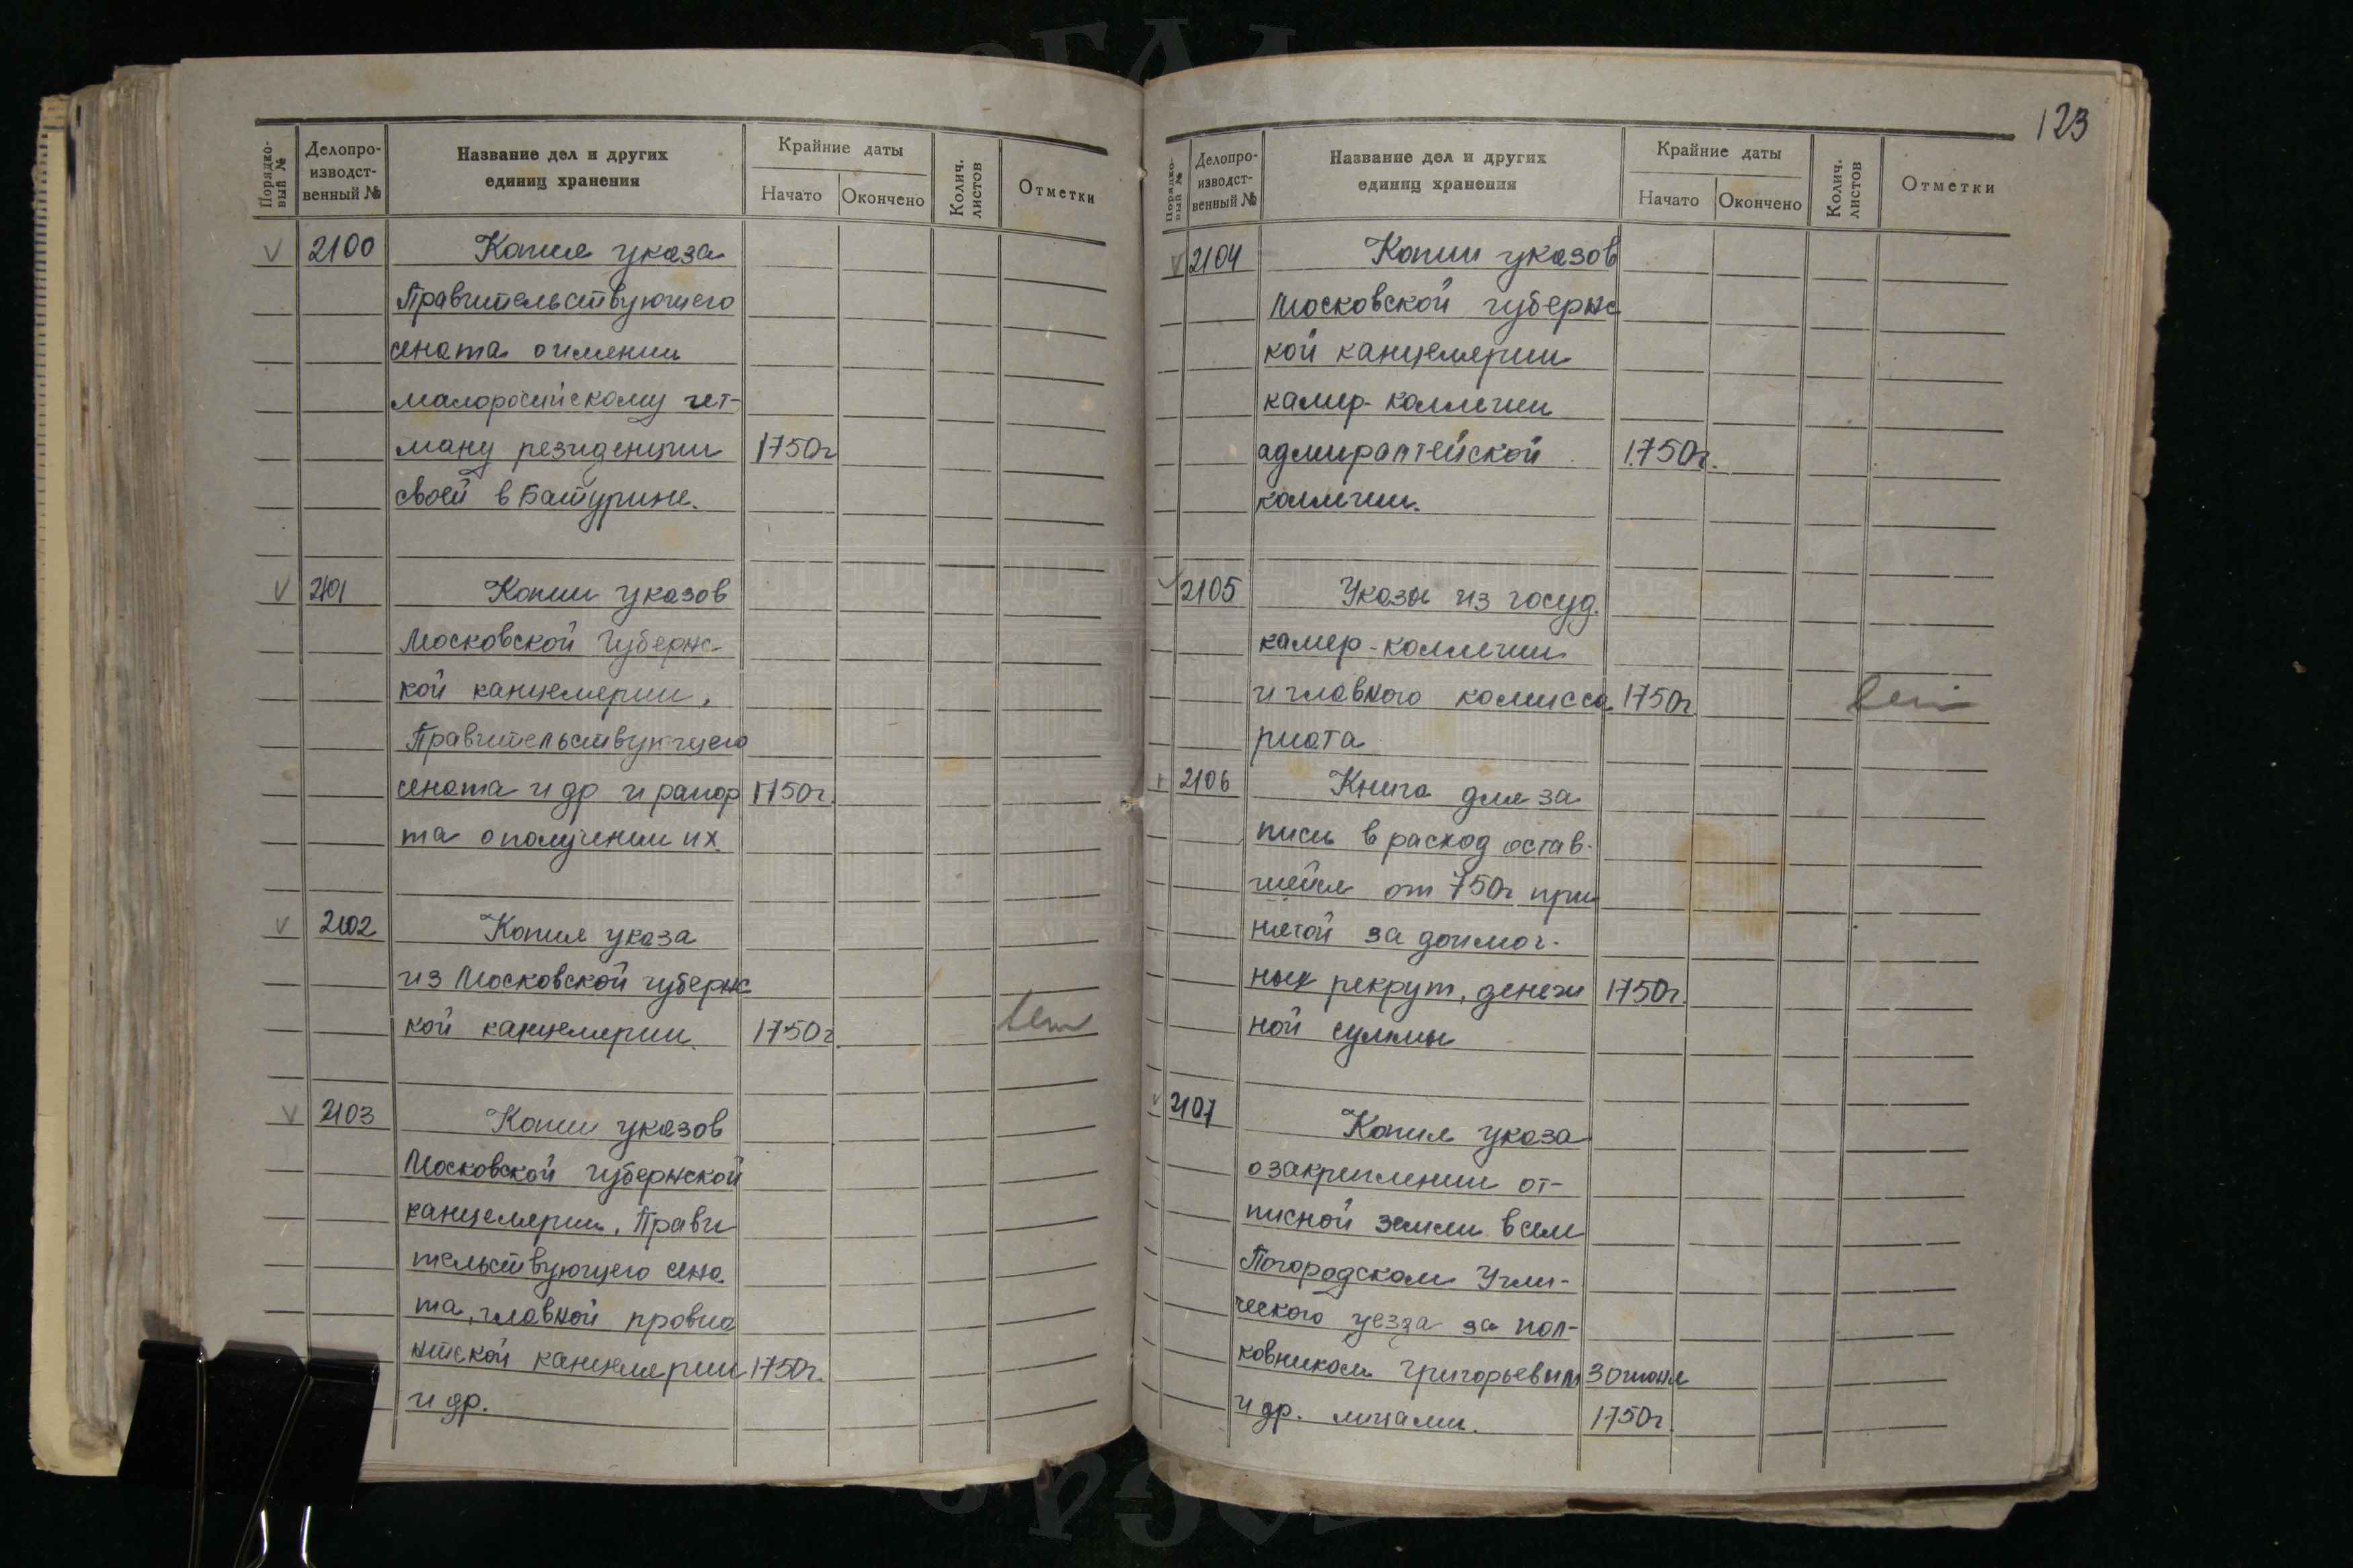 123
Порядковый №
Делопроизводственный №
Название дел и других единиц хранения
Крайние даты
Начато
Окончено
Колич. листов
Отметки
V 2100 Копия указа
Правительствующего
сената о имении
малоросийскому гет-
ману резиденции 1750г
своей в Батурине.
V 2101 Копии указов
Московской губернс-
кой канцелярии,
Правительствующего
сената и др и рапор 1750г.
та о получении их.
V 2102 Копия указа
из Московской губернс
кой канцелярии. 1750г
V 2103 Копии указов
Московской губернской
канцелярии, Прави
тельствующего сена
та, главной провиа
нтской канцелярии 1750г.
и др.
Порядковый №
Делопроизводственный №
Название дел и других единиц хранения
Крайние даты
Начато
Окончено
Колич. листов
Отметки
V 2104 Копии указов
Московской губернс
кой канцелярии
камер-коллегии
адмиралтейской 1750г.
коллегии.
V 2105 Указы из госуд.
камер-коллегии
и главного комисса 1750г
риата
2106 Книга для за
писи в расход остав-
шейся от 750г при
нятой за доимоч-
ных рекрут, денеж 1750г.
ной суммы
V 2107 Копия указа
о закреплении от-
писной земли в селе
Погородском Угли-
ческого уезда за пол-
ковником Григорьевым 30 июня
и др. лицами. 1750г.